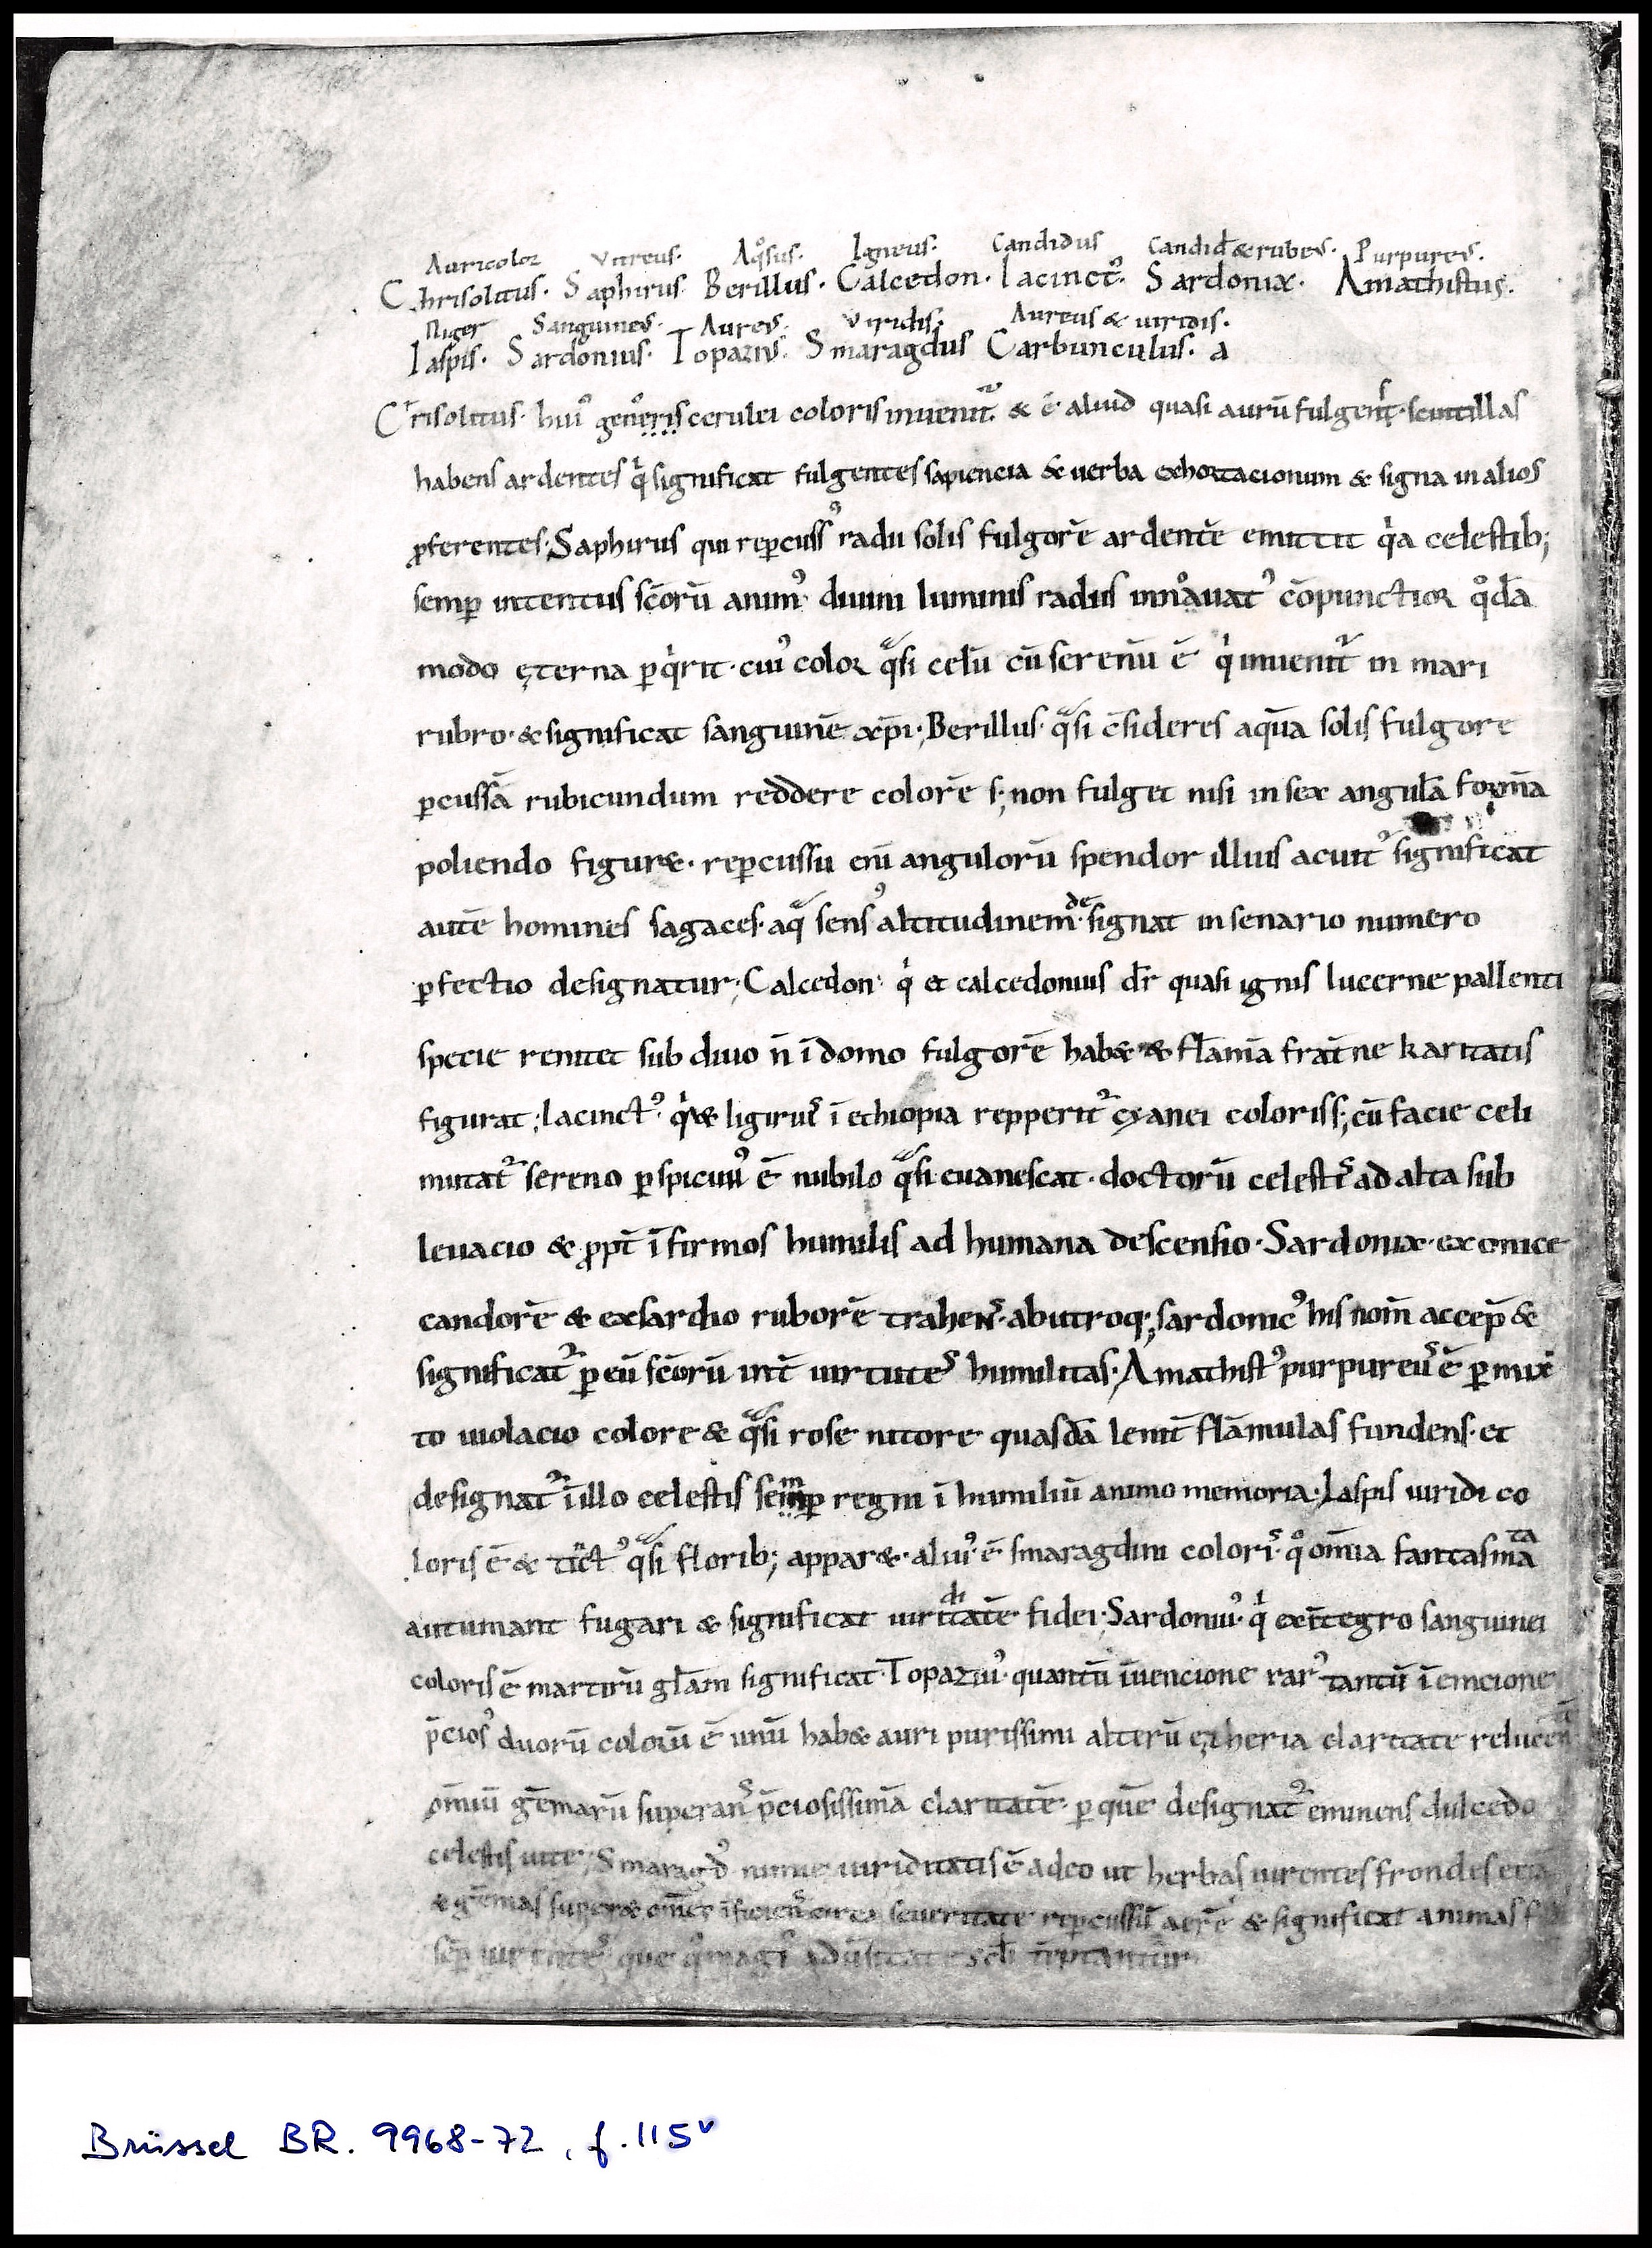 Auricolor Vitreus. Aqͦsus. Igneus. Candidus Candid̄ & rubeꝰ. Purpureꝰ.
Chrisolitus. Saphirus. Berillus. Calcedon. Iacinctꝰ. Sardonix. Amathistus.
Niger Sanguineꝰ. Aureꝰ. Viridis. Aureus & uiridis.
Iaspis. Sardonius. Topaziꝰ. Smaragdus Carbunculus. a
Crisolitus. huiꝰ generis cerulei coloris inuenit᷑. & ē aliud quasi aurū fulgent. scintillas
habens ardentes qͥ significat fulgentes sapiencia & uerba exhortacionum & signa in alios
ꝓferentes. Saphirus qui reꝑcussꝰ radii solis fulgorē ardentē emittit qͥa celestib;
semꝑ intentus scōrū animꝰ diuini luminis radiis innouatꝰ cōpunctior qͦdā
modo ęterna ꝑqͥrit. cuiꝰ color qᵃsi celū cū serenū ē qͥ inuenit᷑ in mari
rubro. & significat sanguinē xp̄i. Berillus. qᵃsi c̄sideres aquā solis fulgore
ꝑcussā rubicundum reddere colorē s; non fulget nisi in sex angulā formā
poliendo figur&. reꝑcussu enī angulorū spendor illius acuit᷑ significat
autē homines sagaces. aqᵃ sensꝰ altitudinem designat in senario numero
ꝑfectio designatur; Calcedon. qͥ et calcedonius dr̄ quasi ignis lucerne pallenti
specie renitet sub diuo n̄ ī domo fulgorē hab& & flāmā frat̄ne karitatis
figurat; Iacinctꝰ. qͥ & ligirꝰ ī ethiopia repperit᷑ cyanei coloris s; cū facie celi
mutat᷑ sereno ꝑspicuꝰ ē nubilo qᵃsi euanescat. doctorū celestis ad alta sub
leuacio & ꝓpt̄ īfirmos humilis ad humana descensio. Sardonix. ex onice
candorē & exsardio ruborē trahens. abutroq; sardonicꝰ his nom̄ accep̄ &
significat᷑ ꝑ eū scōrū int̄ uirtutes humilitas. Amathistꝰ purpureꝰ ē ꝑmix
to uiolacio colore & qᵃsi rose nitore quasdā lenit̄ flāmulas fundens. et
designat᷑ ī illo celestis semꝑ regni ī humiliū animo memoria. Iaspis uiridi co
loris ē & tīctꝰ qᵃsi florib; appar&. aliuꝰ ē smaragdini coloris qͦ om̄ia fantasmata
autumant fugari & significat uiriditatē fidei. Sardoniuꝰ. qͥ ex ītegro sanguinei
coloris ē martirū gl̄am significat. Topaziuꝰ. quantū īuencione rarꝰ tantū ī emcione
p̄ciosꝰ duorū colorū ē unū hab& auri purissimi alterū ętheria claritate relucent
om̄iū gēmarū superans p̄ciosissimā claritatē. ꝑ quē designat᷑ eminens dulcedo
celestis uite; Smaragdꝰ nimie uiriditatis ē adeo ut herbas uirentes frondis
& gēmas super& om̄es īficiens circa seueritate reꝑcussū aerē & significat animas
semꝑ uirentes que qͦ magis aduersitate sc̄li
Brüssel BR. 9968-72, f. 115ᵛ